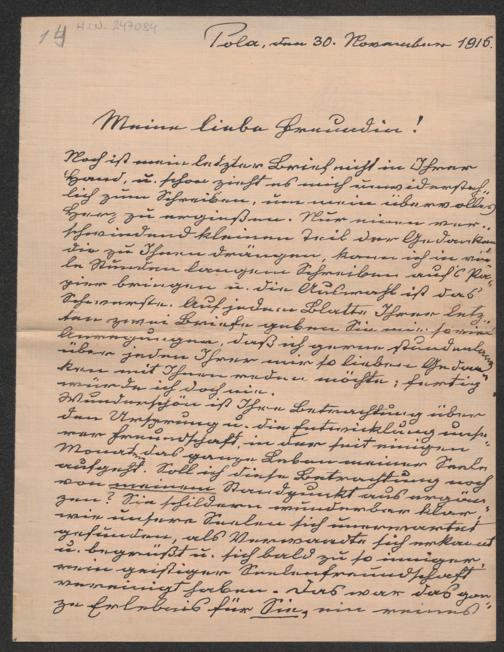 19 H.I.N. 247084
Pola, den 30. November 1916.
Meine liebe Freundin!
Noch ist mein letzter Brief nicht in Ihrer
Hand, u. schon zieht es mich unwidersteh-
lich zum Schreiben, um mein übervolles
Herz zu ergießen. Nur einen ver-
schwindend kleinen Teil der Gedanken
die zu Ihnen drängen, kann ich in vie-
le Stunden langem Schreiben aufs Pa-
pier bringen u. die Auswahl ist das
Schwerste. Auf jedem Blatte Ihrer letz-
ten zwei Briefe geben Sie mir so viel
Anregungen, daß ich gerne stundenlang
über jeden Ihrer mir so lieben Gedan-
ken mit Ihnen reden möchte; fertig
würde ich doch nie.
Wunderschön ist Ihre Betrachtung über
den Ursprung u. die Entwicklung unse-
rer Freundschaft, in der seit einigen
Monaten das ganze Leben meiner Seele
aufgeht. Soll ich diese Betrachtung noch
von meinem Standpunkt aus ergän-
zen? Sie schildern wunderbar klar
wie unsere Seelen sich unerwartet
gefunden, als Verwandte sich erkannt
u. begrüßt u. sich bald zu so inniger,
rein geistiger Seelenfreundschaft
vereinigt haben. Das war das gan-
ze Erlebnis für Sie, ein reines